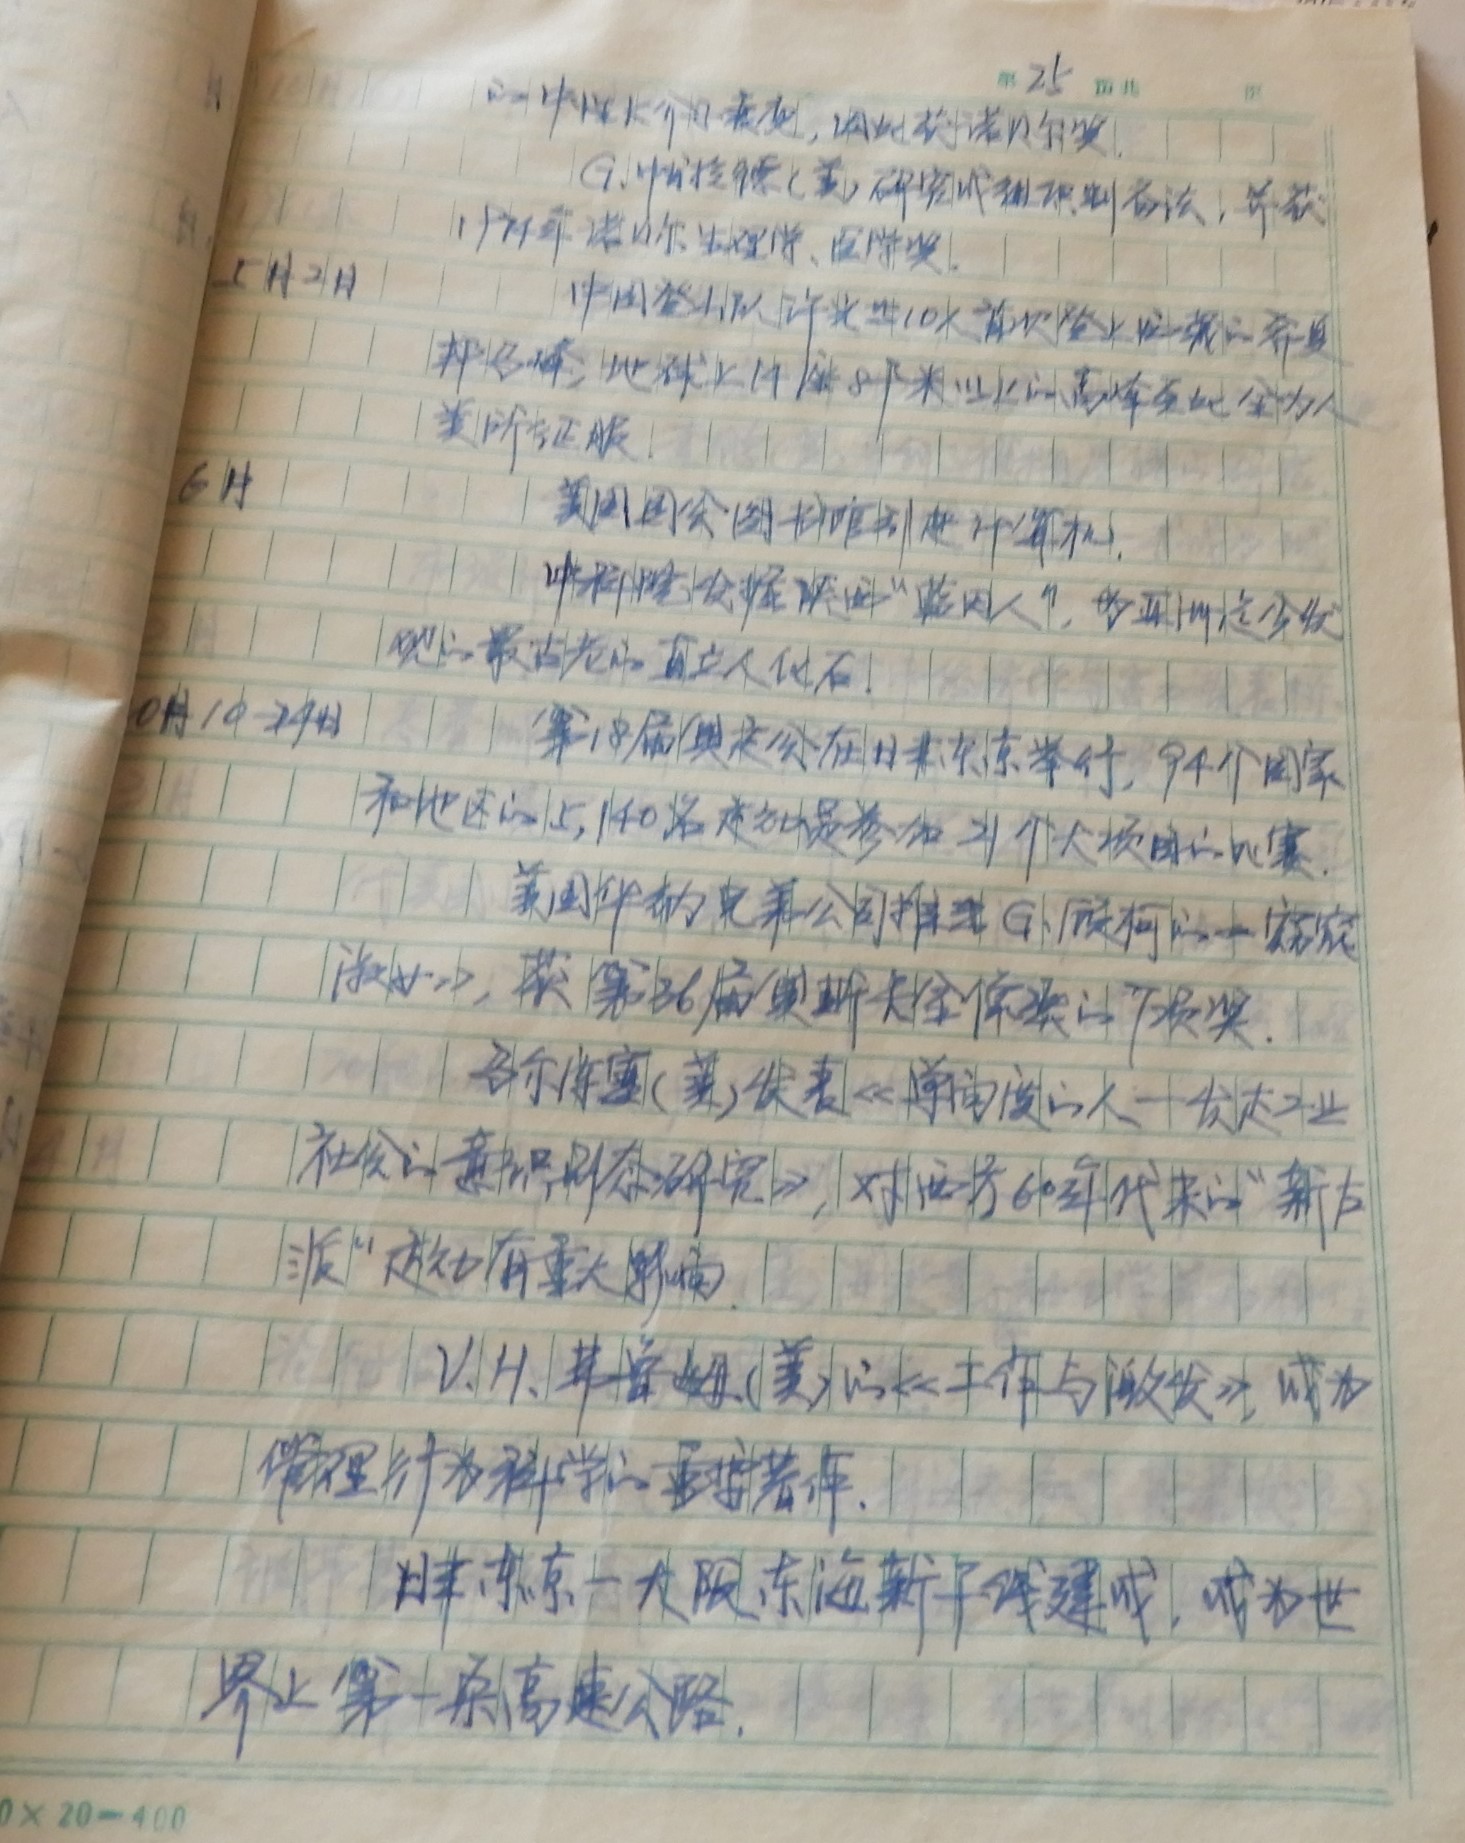 第25页共 页
的中性K介子衰变，因此获诺贝尔奖.
G.帕拉德(美)研究成细胞制备法，并获
1974年诺贝尔生理学、医学奖.
5月2日 中国登山队许竞等10人首次登上西藏的希夏
邦马峰；地球上14座8千米以上的高峰至此全为人
类所征服.
6月 美国国会图书馆引进计算机.
中科院发掘陕西“蓝田人”，为亚洲迄今发
现的最古老的直立人化石.
0月10-24日 第18届奥运会在日本东京举行，94个国家
和地区的5,140名运动员参加21个大项目的比赛.
美国华纳兄弟公司推出G.顾柯的
淑女》，获第36届奥斯卡金像奖的7项奖.
马尔库塞(美)发表《单向度的人—发达工业
社会的意识形态研究》，对西方60年代末的“新左
派”运动有重大影响.
V.H.弗鲁姆(美)的《工作与激发》，成为
管理行为科学的重要著作.
日本东京—大阪东海新干线建成，成为世
界上第一条高速公路.
0×20=400